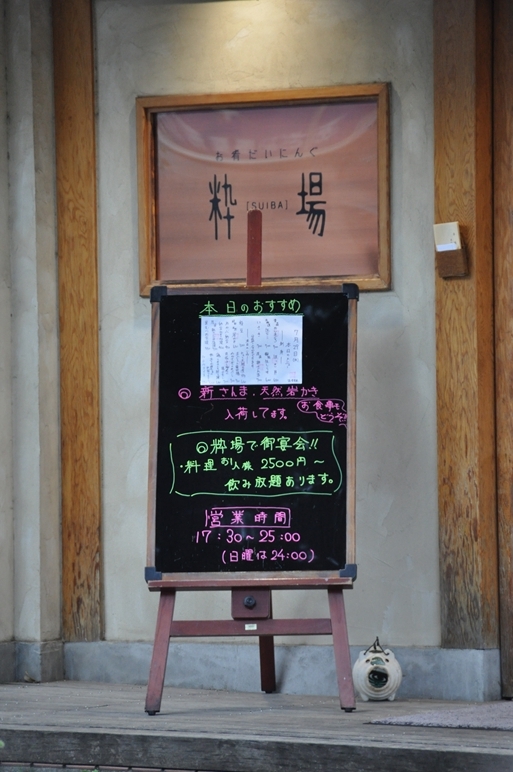 お肴だいにんぐ
粋 [SUIBA] 場
本日のおすすめ
◎新さんま・天然岩かき
入荷してます。
お食事もどうぞ
◎粋場で御宴会!!
・料理 お1人様 2500円〜
飲み放題あります。
営業時間
17:30〜25:00
(日曜は24:00)